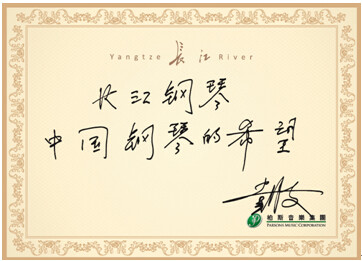 Yangtze 長江 River
长江钢琴
中国钢琴的希望
柏斯音樂集團
PARSONS MUSIC CORPORATION